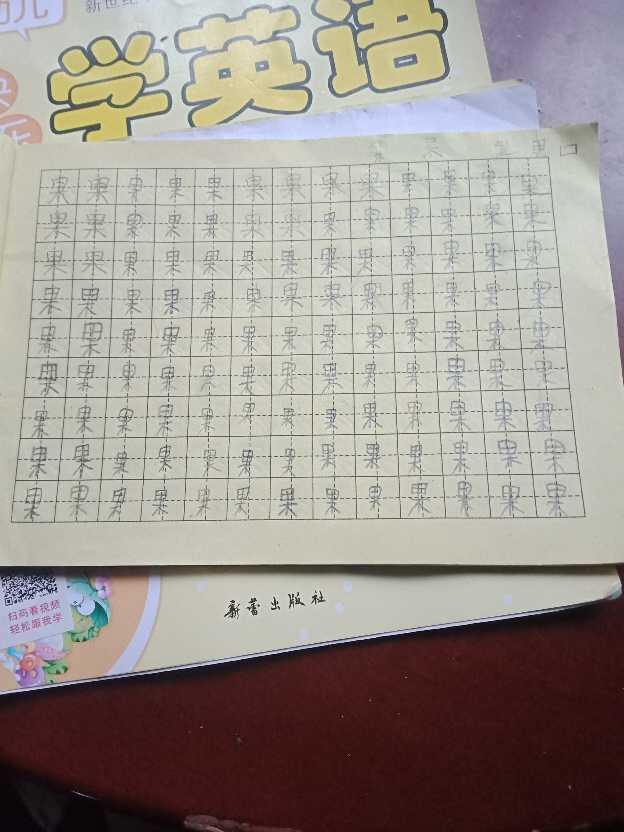 幼儿
新世纪
学英语
果果果果果果果果果果果果果
果果果果果果果果果果果果果
果果果果果果果果果果果果果
果果果果果果果果果果果果果
果果果果果果果果果果果果果
果果果果果果果果果果果果果
果果果果果果果果果果果果果
果果果果果果果果果果果果果
果果果果果果果果果果果果果
扫码看视频
轻松跟我学
新蕾出版社